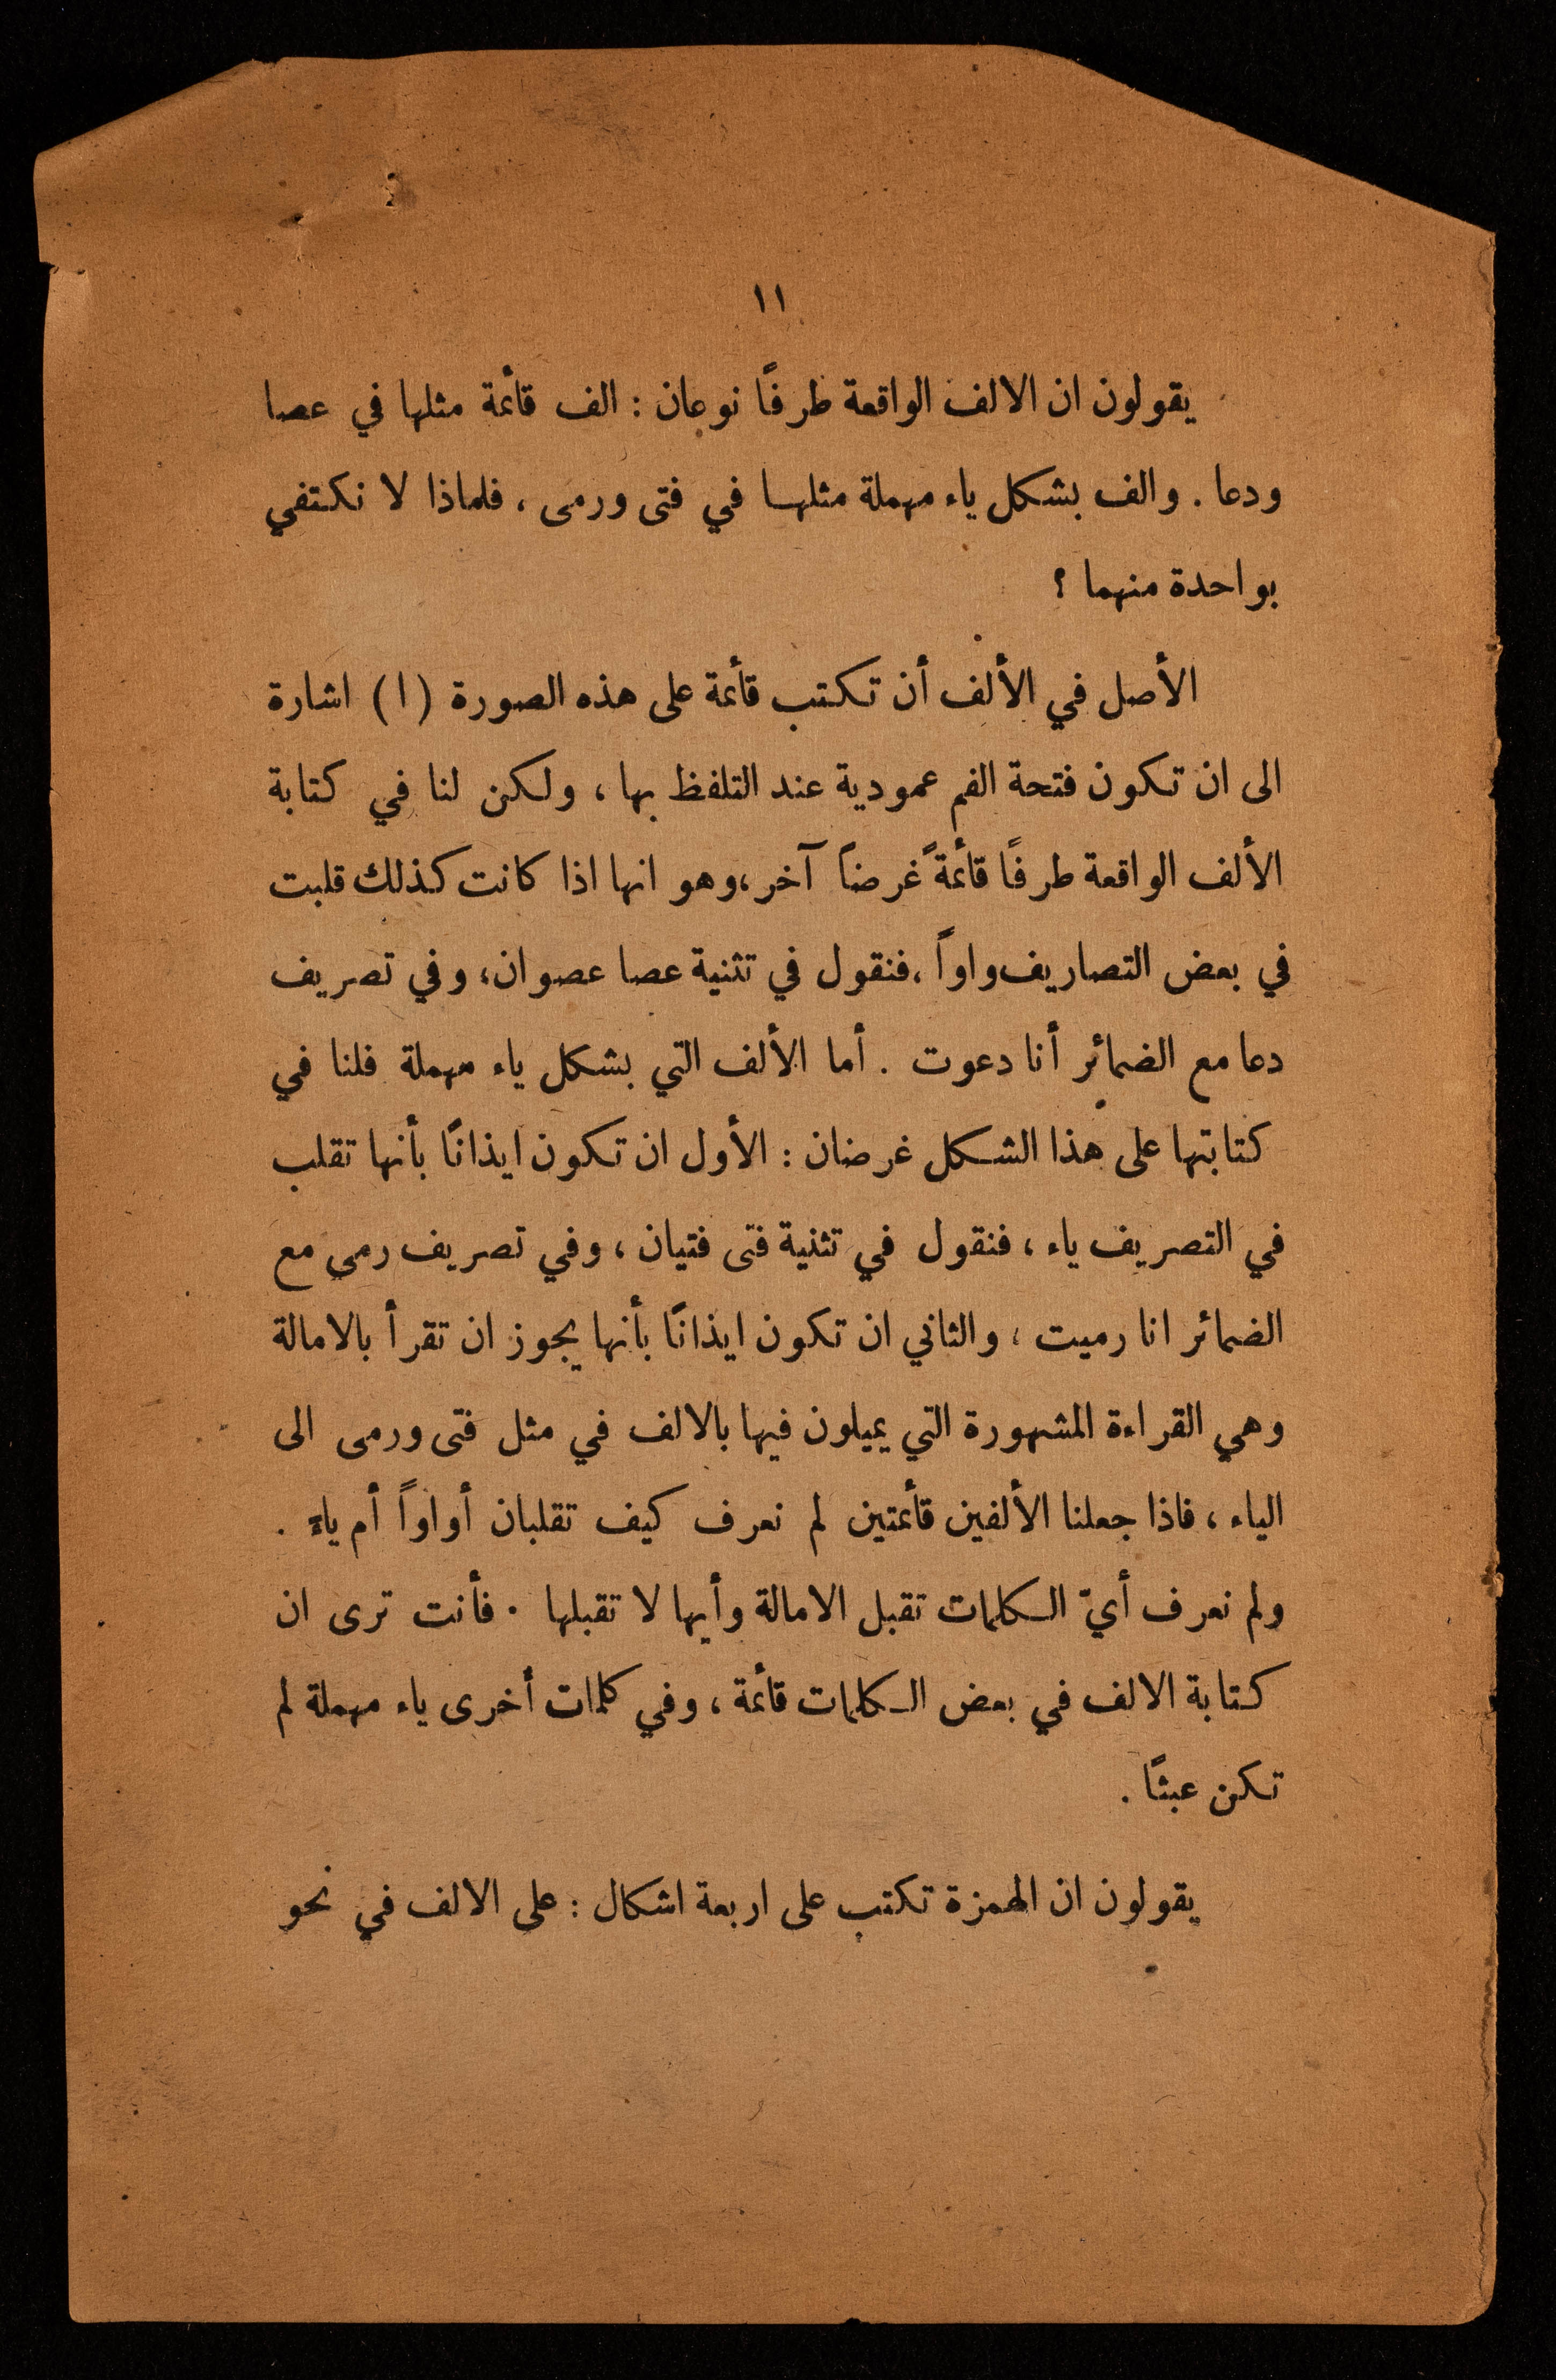 ١١
يقولون ان الالف الواقعة طرفًا نوعان : الف قائمة مثلها في عصا
ودعا . والف بشكل ياء مهملة مثلها في فتى ورمى ، فلماذا لا نكتفي
بواحدة منهما ؟
الأصل في الألف أن تكتب قائمة على هذه الصورة (ا) اشارة
الى ان تكون فتحة الفم عمودية عند التلفظ بها ، ولكن لنا في كتابة
الألف الواقعة طرفًا قائمةً غرضاً آخر ، وهو انها اذا كانت كذلك قلبت
في بعض التصاريف واواً ، فنقول في تثنية عصا عصوان ، وفي تصريف
دعا مع الضمائر أنا دعوت . أما الألف التي بشكل ياء مهملة فلنا في
كتابتها على هذا الشكل غرضان : الأول ان تكون ايذانًا بأنها تقلب
في التصريف ياء ، فنقول في تثنية فتى فتيان ، وفي تصريف رمى مع
الضمائر انا رميت ، والثاني ان تكون ايذانًا بأنها يجوز ان تقرأ بالامالة
وهي القراءة المشهورة التي يميلون فيها بالالف في مثل فتى ورمى الى
الياء ، فاذا جعلنا الألفين قائمتين لم نعرف كيف تقلبان أواواً أم ياءً .
ولم نعرف أيّ الكلمات تقبل الامالة وأيها لا تقبلها . فأنت ترى ان
كتابة الالف في بعض الكلمات قائمة ، وفي كلمات أخرى ياء مهملة لم
تكن عبثًا .
يقولون ان الهمزة تكتب على اربعة اشكال : على الالف في نحو